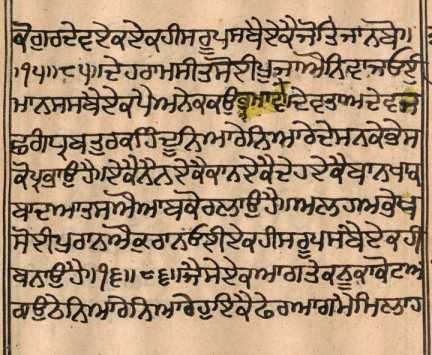 ਕੋਗੁਰਦੇਵਏਕਏਕਹੀਸਰੂਪਸਬੈਏਕੈਜੋਤਿਜਾਨਬੋ॥
॥੧੫॥੮੫॥ਦੇਹਰਾਮਸੀਤਸੋਈਪੂਜਾਔਨਿਵਾਜਓਈ
ਮਾਨਸਸਬੈਏਕਪੈਅਨੇਕਕਉਭ੍ਰਮਾਦੇਵਤਾਅਦੇਵਜ
ਛਗੰਧ੍ਰਬਤੁਰਕਹਿੰਦੂਨਿਆਰੇਨਿਆਰੇਦੇਸਨਕੇਭੇਸ
ਕੋਪ੍ਰਭਾਉਹੈ॥ਏਕੈਨੈਨਏਕੈਕਾਨਏਕੈਦੇਹਏਕੈਬਾਨਖਾਖ
ਬਾਦਆਤਸਔਆਬਕੋਰਲਾਉਹੈ॥ਅਲਹਅਭੇਖ
ਸੋਈਪੁਰਾਨਔਕੁਰਾਨਓਈਏਕਹੀਸਰੂਪਸਬੈਏਕਹੀ
ਬਨਾਉਹੈ॥੧੬॥੮੬॥ਜੈਸੇਏਕਆਗਤੇਕਨੂਕਾਕੋਟਆ
ਗਉਠੇਨਿਆਰੇਨਿਆਰੇਹੁਇਕੈਫੇਰਆਗਮੈਮਿਲਾਹ